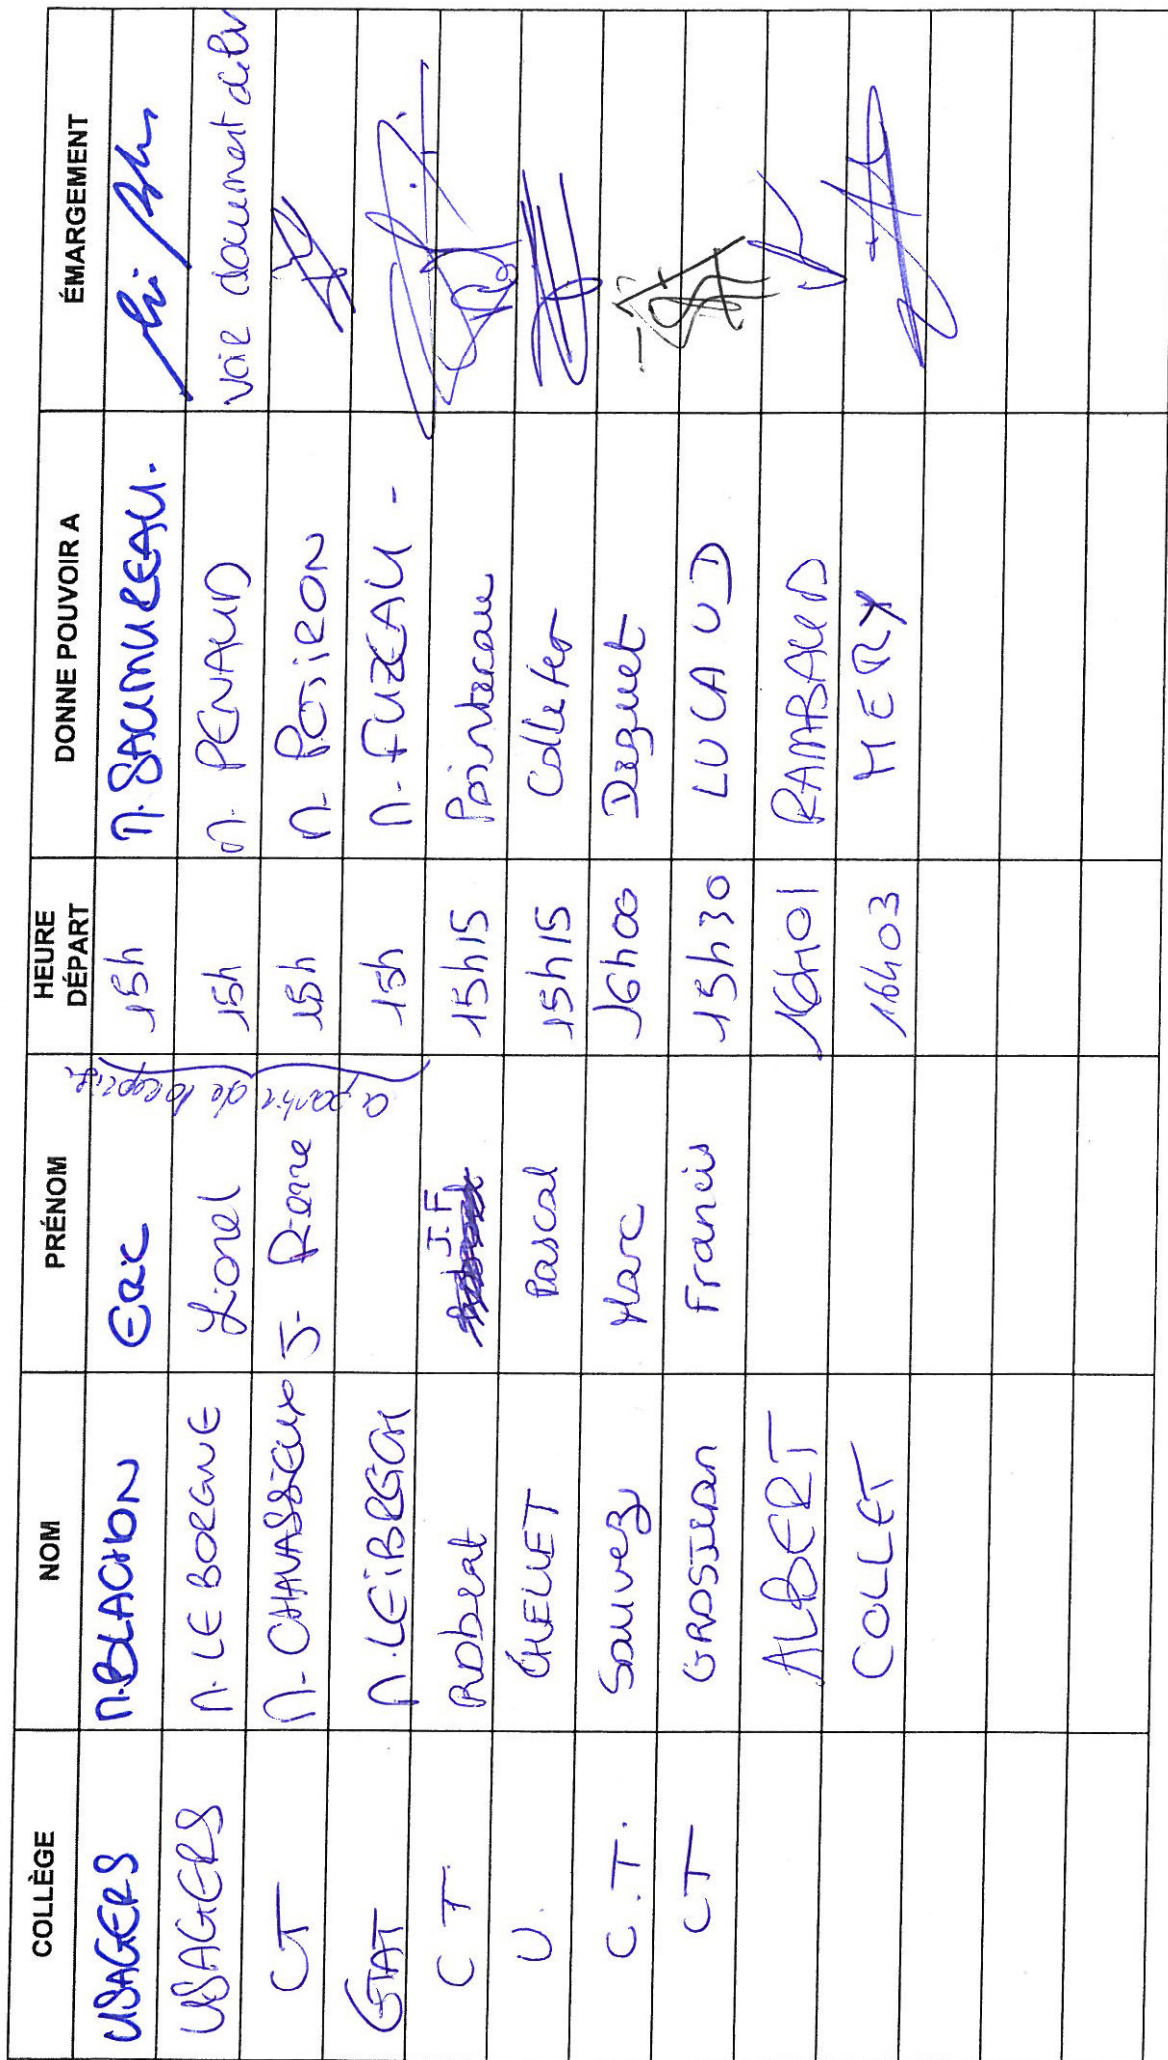 COLLÈGE NOM PRÉNOM HEURE DÉPART DONNE POUVOIR A ÉMARGEMENT
USAGERS M. BLACHON ERIC 15h M. SAUMUREAU.
USAGERS M. LE BORGNE Lionel 15h M. PENAUD voir document
CT M. CHAVASSIEUX J- Pierre 15h M. POIRON
ETAT M. LEIBREICH 15h M. FUZEAU -
a partir de
C T. Robert J.F 15h15 Pointereau
U. CHELLET Pascal 15h15
C.T. Sauvez Marc 16h00 Deguet
CT GROSJEAN Francis 15h30 LUCAUD
ALBERT 16h01 RAMBAUD
COLLET 16h03 MERY